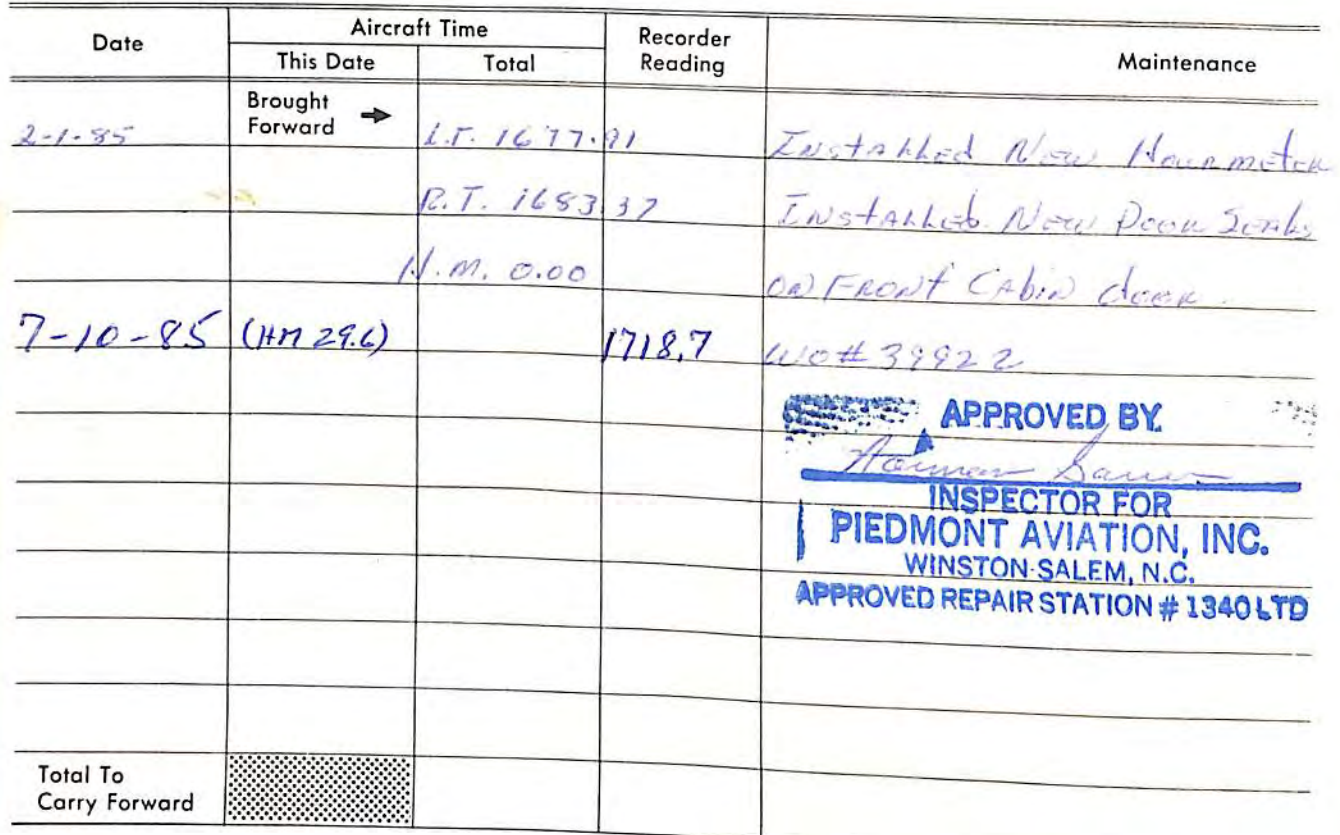 Date Aircraft Time Recorder Reading Maintenance
This Date Total
Brought Forward →
2-1-85 L.T. 1677.91 Installed New Hourmeter
R.T. 1683.37 Installed New Door Seals
H.M. 0.00 on Front Cabin door.
7-10-85 (HM 29.6) 1718.7 WO# 39922
APPROVED BY.
Norman
INSPECTOR FOR
PIEDMONT AVIATION, INC.
WINSTON-SALEM, N.C.
APPROVED REPAIR STATION # 1340 LTD
Total To
Carry Forward